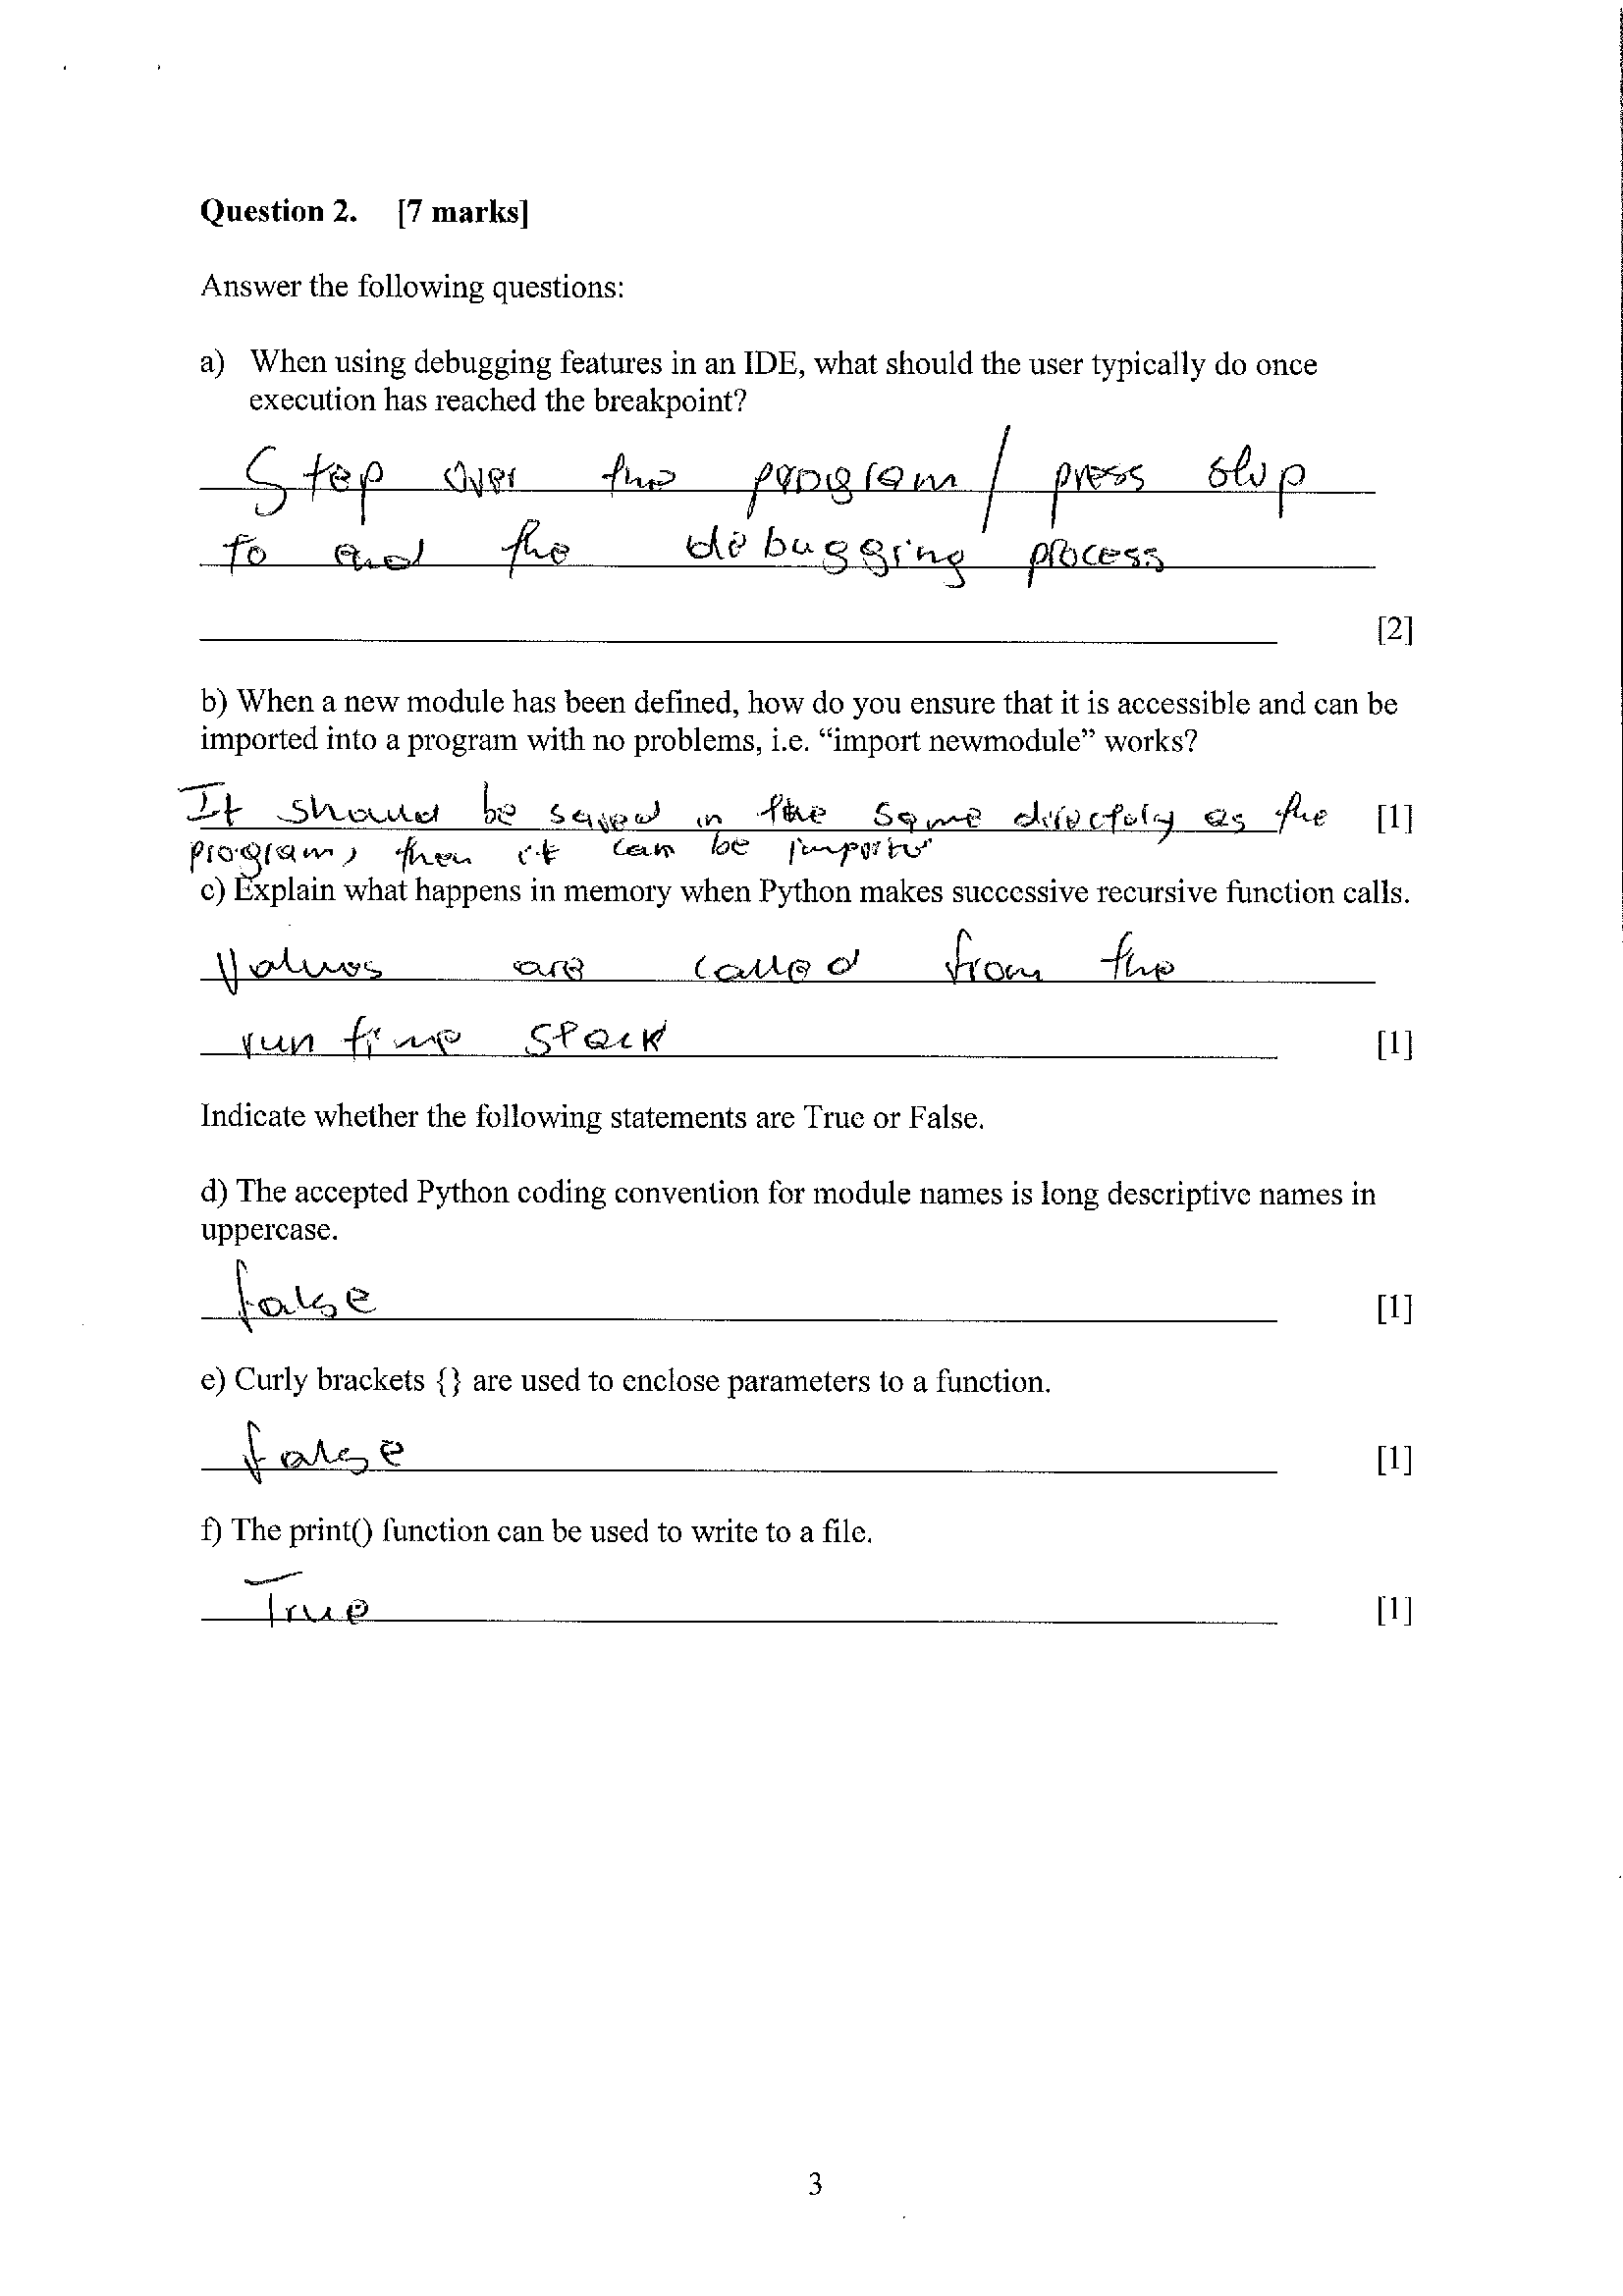 Question 2. [7 marks]
Answer the following questions:
a) When using debugging features in an IDE, what should the user typically do once
execution has reached the breakpoint?
Step over the program / press stop
to end the debugging process
[2]
b) When a new module has been defined, how do you ensure that it is accessible and can be
imported into a program with no problems, i.e. “import newmodule” works?
It should be saved in the same directory as the [1]
program, then it can be
c) Explain what happens in memory when Python makes successive recursive function calls.
Values are called from the
run time stack [1]
Indicate whether the following statements are True or False.
d) The accepted Python coding convention for module names is long descriptive names in
uppercase.
false [1]
e) Curly brackets {} are used to enclose parameters to a function.
false [1]
f) The print() function can be used to write to a file.
True [1]
3